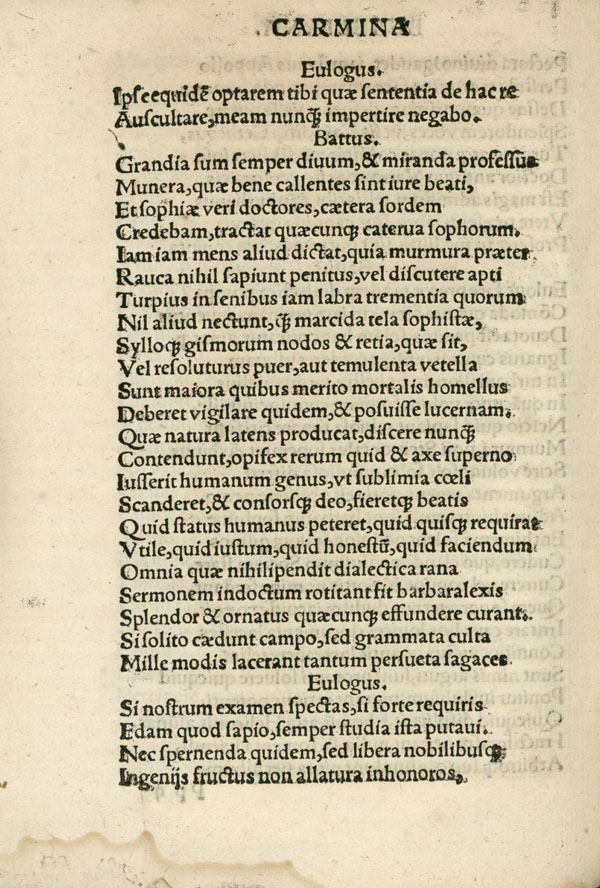 CARMINA
Eulogus.
Ipse equidē optarem tibi quæ sententia de hac re
Auscultare, meam nunꝗ̃ impertire negabo.
Battus.
Grandia sum semper diuum, & miranda professus
Munera, quæ bene callentes sint iure beati,
Et sophiæ veri doctores, cætera sordem
Credebam, tractat quæcunqꝫ caterua sophorum.
Iam iam mens aliud dictat, quia murmura præter
Rauca nihil sapiunt penitus, vel discutere apti
Turpius in senibus iam labra trementia quorum
Nil aliud nectunt, ꝗ̃ marcida tela sophistæ,
Sylloqꝫ gismorum nodos & retia, quæ sit,
Vel resoluturus puer, aut temulenta vetella
Sunt maiora quibus merito mortalis homellus
Deberet vigilare quidem, & posuisse lucernam.
Quæ natura latens producat, discere nunꝗ̃
Contendunt, opifex rerum quid & axe superno
Iusserit humanum genus, vt sublimia cœli
Scanderet, & consorsqꝫ deo, fieretqꝫ beatis
Quid status humanus peteret, quid quisqꝫ requirat
Vtile, quid iustum, quid honestū, quid faciendum
Omnia quæ nihilipendit dialectica rana
Sermonem indoctum rotitant fit barbaralexis
Splendor & ornatus quæcunqꝫ effundere curant.
Si solito cædunt campo, sed grammata culta
Mille modis lacerant tantum persueta sagaces
Eulogus.
Si nostrum examen spectas, si forte requiris
Edam quod sapio, semper studia ista putaui.
Nec spernenda quidem, sed libera nobilibusqꝫ
Ingenijs fructus non allatura inhonoros,